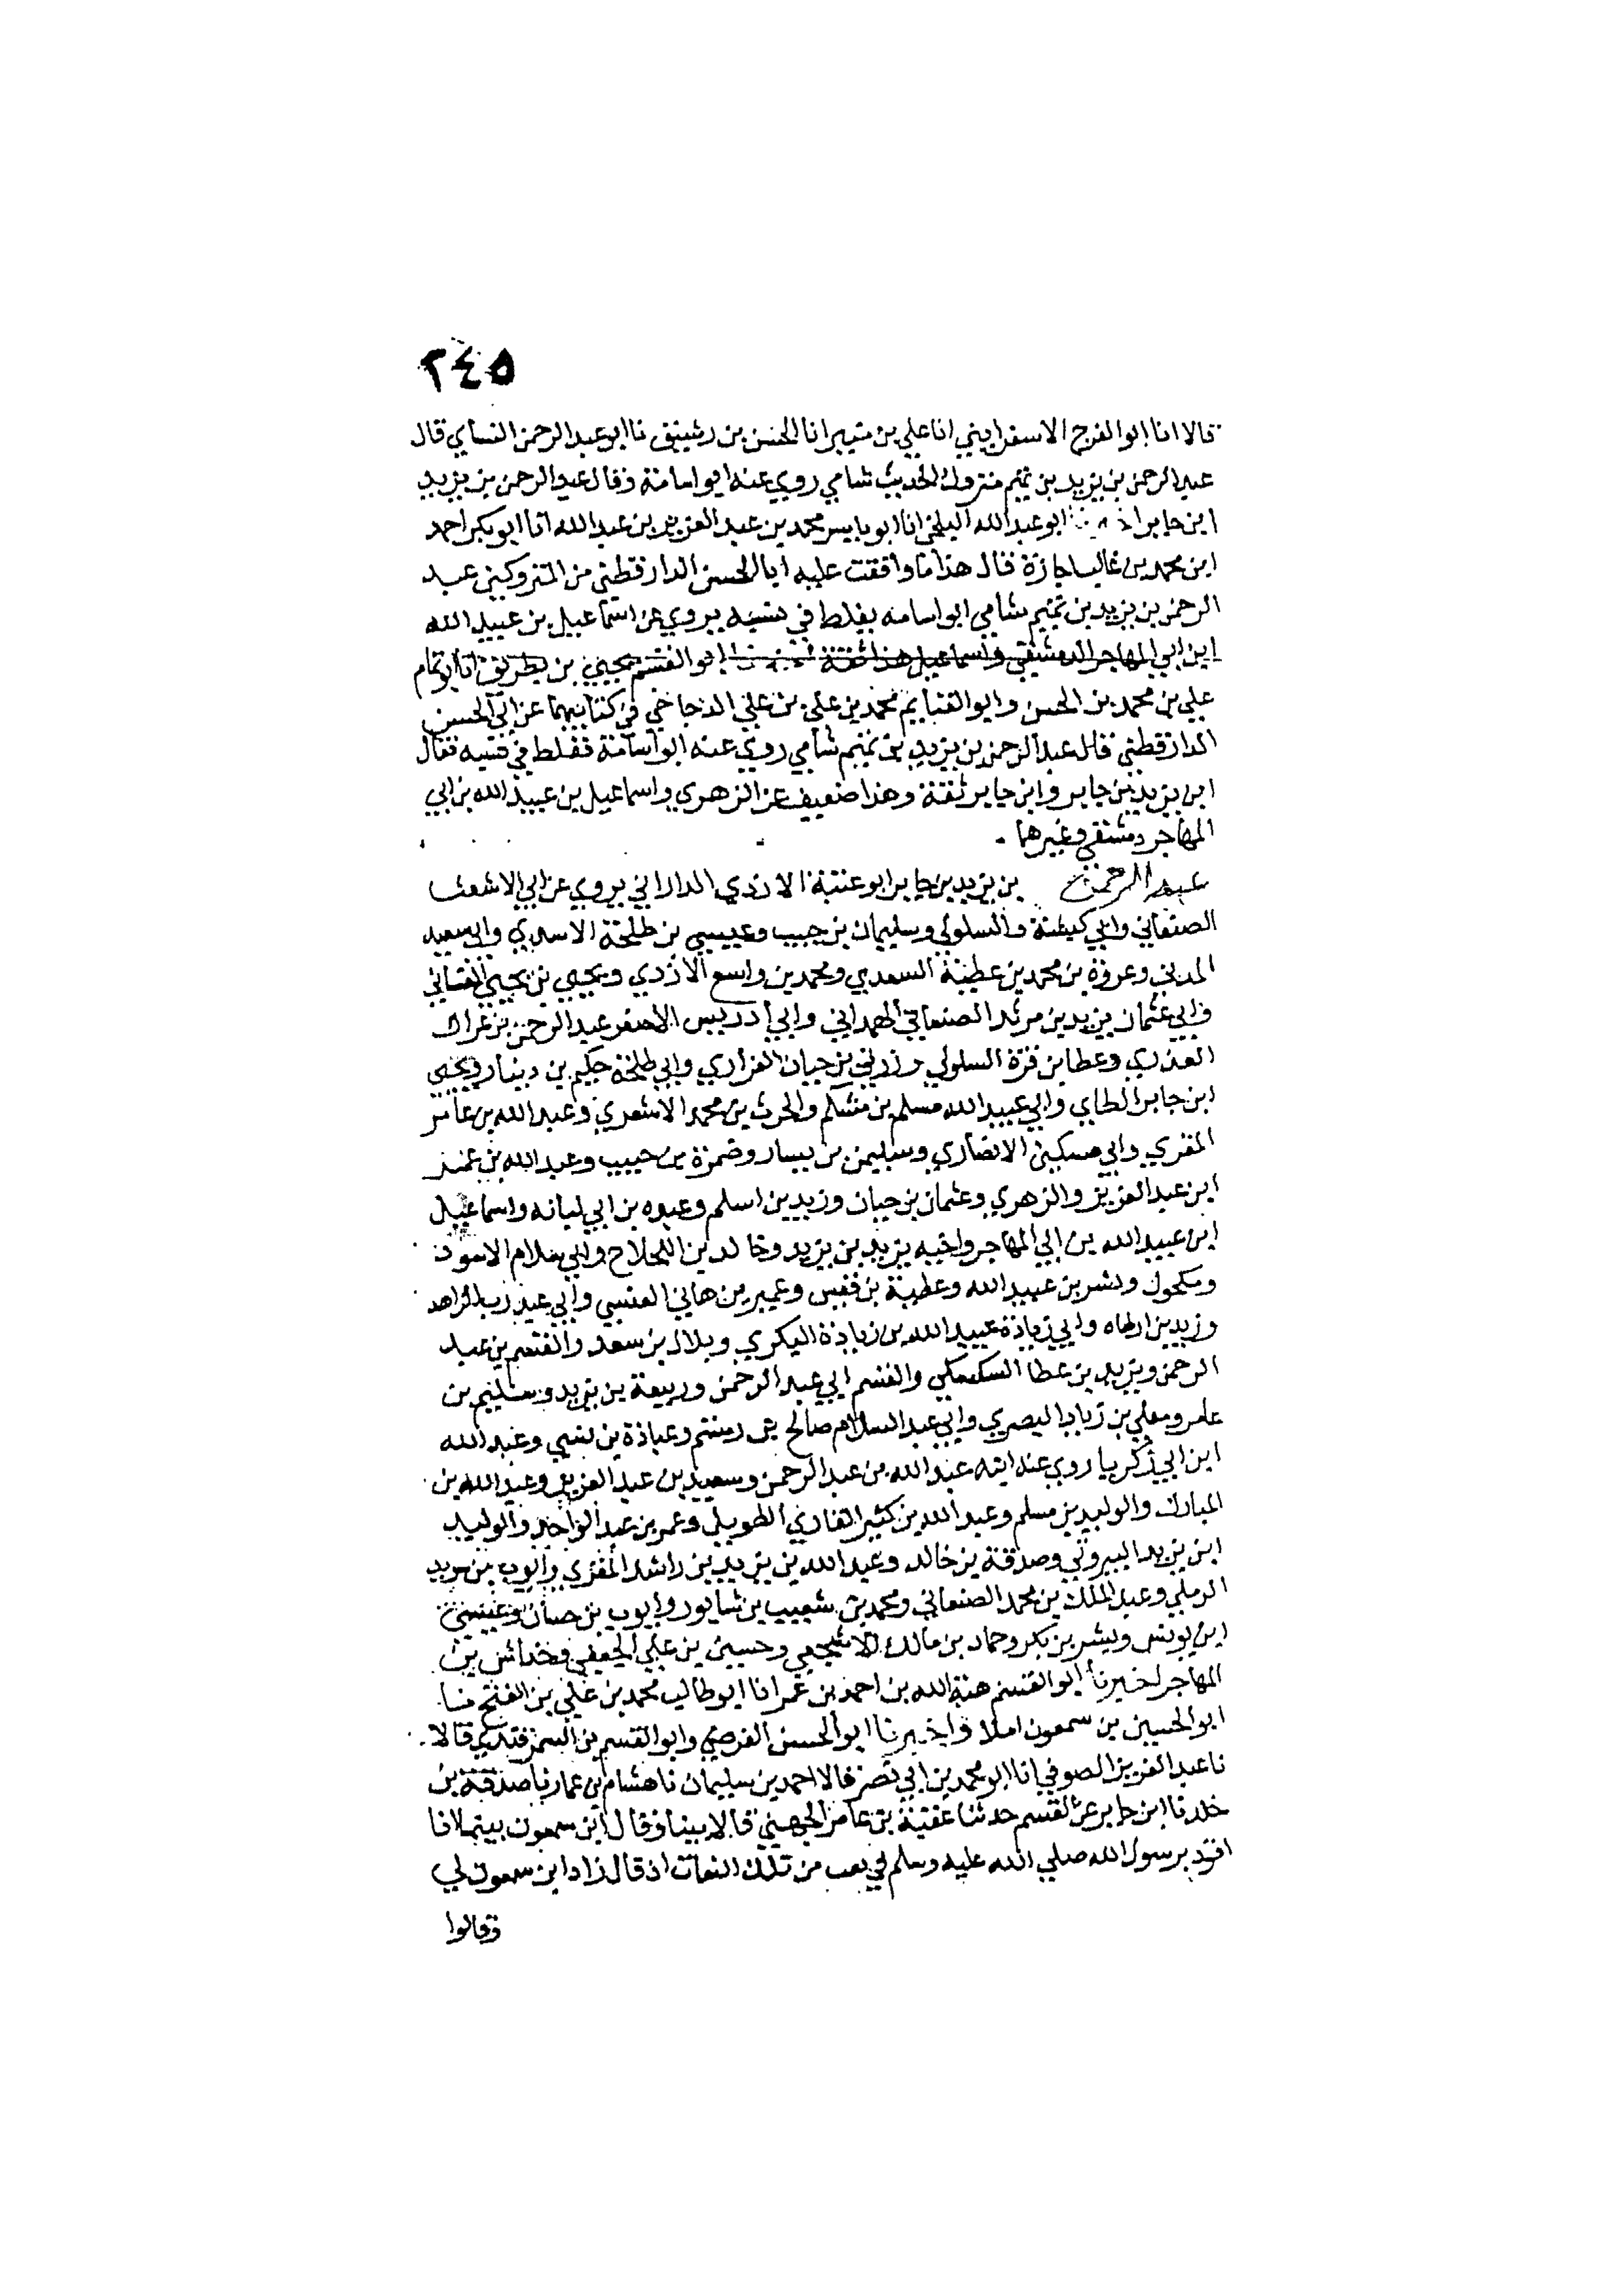 ٢٤٥
قالا انا ابو الفرج الاسفرايني انا علي بن منير انا الحسن بن رشيق نا ابو عبد الرحمن النساي قال
عبد الرحمن بن يزيد بن تميم متروك الحديث شامي روي عنه ابو اسامة وقال عبد الرحمن بن يزيد
ابن جابر ابو عبد الله البلخي انا ابو ياسر محمد بن عبد العزيز بن عبد الله انا ابو بكر احمد
ابن محمد بن غالب اجازة قال هذا ما وافقت عليه ابا الحسن الدارقطني من المتروكين عبد
الرحمن بن يزيد بن تميم شامي ابو اسامه يغلط في نسبه يروي عن اسماعيل بن عبيد الله
ابن ابي المهاجر الدمشقي واسماعيل هذا ثقة ابو القسم يحيي بن بطريق انا ابو تمام
علي بن محمد بن الحسن وابو الغنايم محمد بن علي بن علي الدجاجي في كتابيهما عن ابي الحسن
الدارقطني قال عبد الرحمن بن يزيد بن تميم شامي روي عنه ابو اسامة فغلط في نسبه فقال
ابن يزيد بن جابر وابن جابر ثقة وهذا ضعيف عن الزهري واسماعيل بن عبيد الله بن ابي
المهاجر دمشقي وغيرهما
عبد الرحمن بن يزيد بن جابر ابو عتبة الازدي الداراني يروي عن ابي الاشعث
الصنعاني وابي كبشة والسلولي وسليمان بن حبيب وعيسي بن طلحة الاسدي وابي سعيد
المدني وعروة بن محمد بن عطية السعدي ومحمد بن واسع الازدي ويحيي بن يحيي الغساني
وابي عثمان يزيد بن مرثد الصنعاني الهمداني وابي ادريس الاصغر عبد الرحمن بن عراك
العذري وعطا بن قرة السلولي ورزيق بن حيان الفزاري وابي طلحة حكيم بن دينار ويحيي
ابن جابر الطاي وابي عبيد الله مسلم بن مشكم والحرث بن محمد الاشعري وعبد الله بن عامر
المقري وابي مسكين الانصاري وسليمن بن يسار وضمرة بن حبيب وعبد الله بن عمر
ابن عبد العزيز والزهري وعثمان بن حيان وزيد بن اسلم وعبده بن ابي لبابه واسماعيل
ابن عبيد الله بن ابي المهاجر واخيه يزيد بن يزيد وخالد بن اللجلاج وابي سلام الاسود
ومكحول وبسر بن عبيد الله وعطية بن قيس وعمير بن هاني العنسي وابي عبد رب الزاهد
وزيد بن ارطاه وابي زيادة عبيد الله بن زيادة البكري وبلال بن سعد والقسم بن عبد
الرحمن ويزيد بن عطا السكسكي والقسم ابي عبد الرحمن وربيعة بن يزيد وسليم بن
عامر ومعلي بن زياد البصري وابي عبد السلام صالح بن رستم وعبادة بن نسي وعبد الله
ابن ابي زكريا روي عنه ابنه عبد الله بن عبد الرحمن وسعيد بن عبد العزيز وعبد الله بن
المبارك والوليد بن مسلم وعبد الله بن كثير القاري الطويل وعمر بن عبد الواحد والوليد
ابن يزيد البيروتي وصدقة بن خالد وعبد الله بن يزيد بن راشد المقري وايوب بن سويد
الرملي وعبد الملك بن محمد الصنعاني ومحمد بن شعيب بن شابور وايوب بن حسان وعيسي
ابن يونس وبشر بن بكر وحماد بن مالك الاشجعي وحسين بن علي الجعفي وخداش بن
المهاجر اخبرنا ابو القسم هبة الله بن احمد بن عمر انا ابو طالب محمد بن علي بن الفتح نا
ابو الحسين بن سمعون املا واخبرنا ابو الحسن الفرضي وابو القسم بن السمرقندي قالا
نا عبد العزيز الصوفي انا ابو محمد بن ابي نصر قالا احمد بن سليمان نا هشام بن عمار نا صدقة بن
خلد نا ابن جابر عن القسم حدثنا عقبة بن عامر الجهني قالا بينا وقال ابن سمعون بينما انا
اقود برسول الله صلي الله عليه وسلم في نقب من تلك النقاب اذ قال زاد ابن سمعون لي
وقالوا